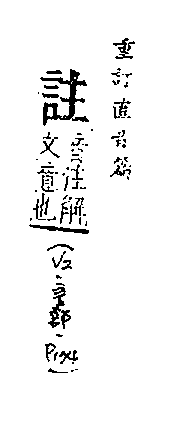 重訂直音篇
註
音注解
文意也
(V2-言部-